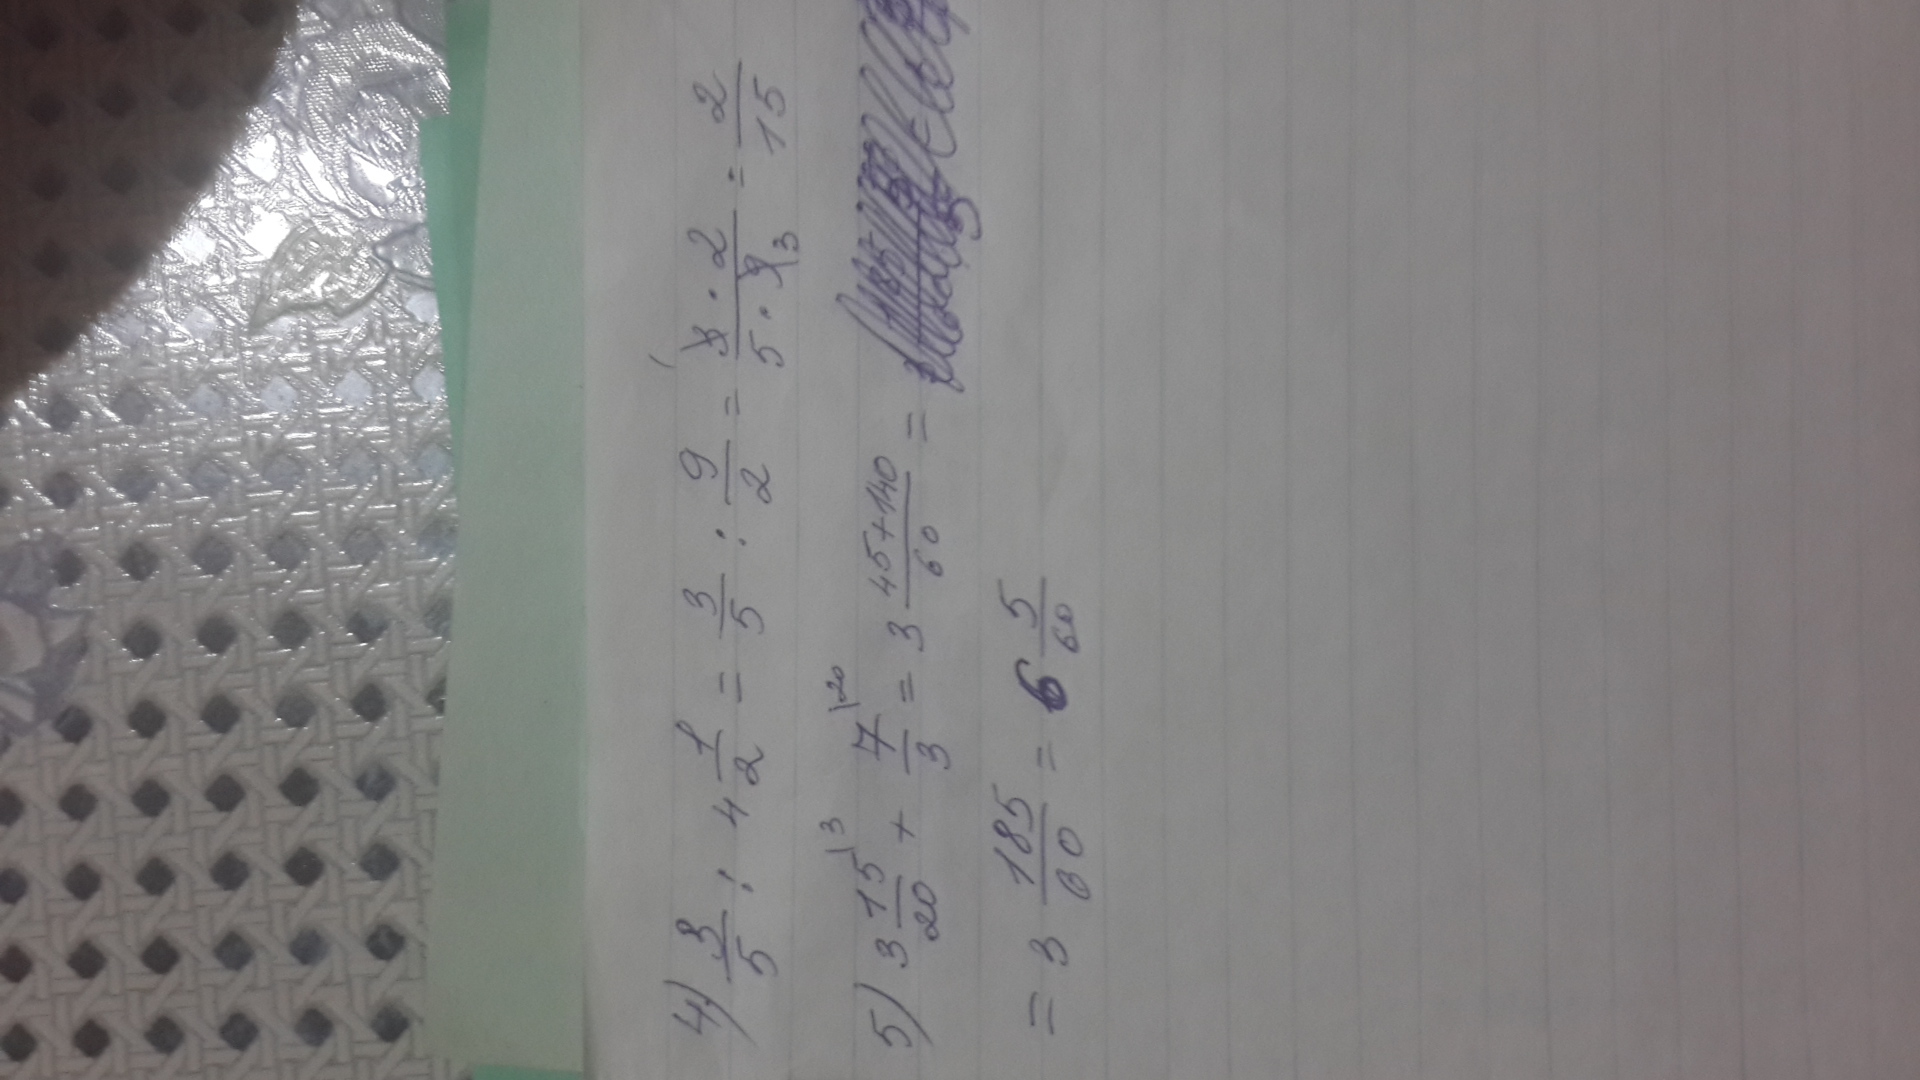 4) 3/5 : 4 1/2 = 3/5 : 9/2 = 3 1 · 2 / 5 · 9 3 = 2/15
5) 3 15/20 \3 + 7/3 \20 = 3 45+140/60 =
= 3 185/60 = 6 5/60